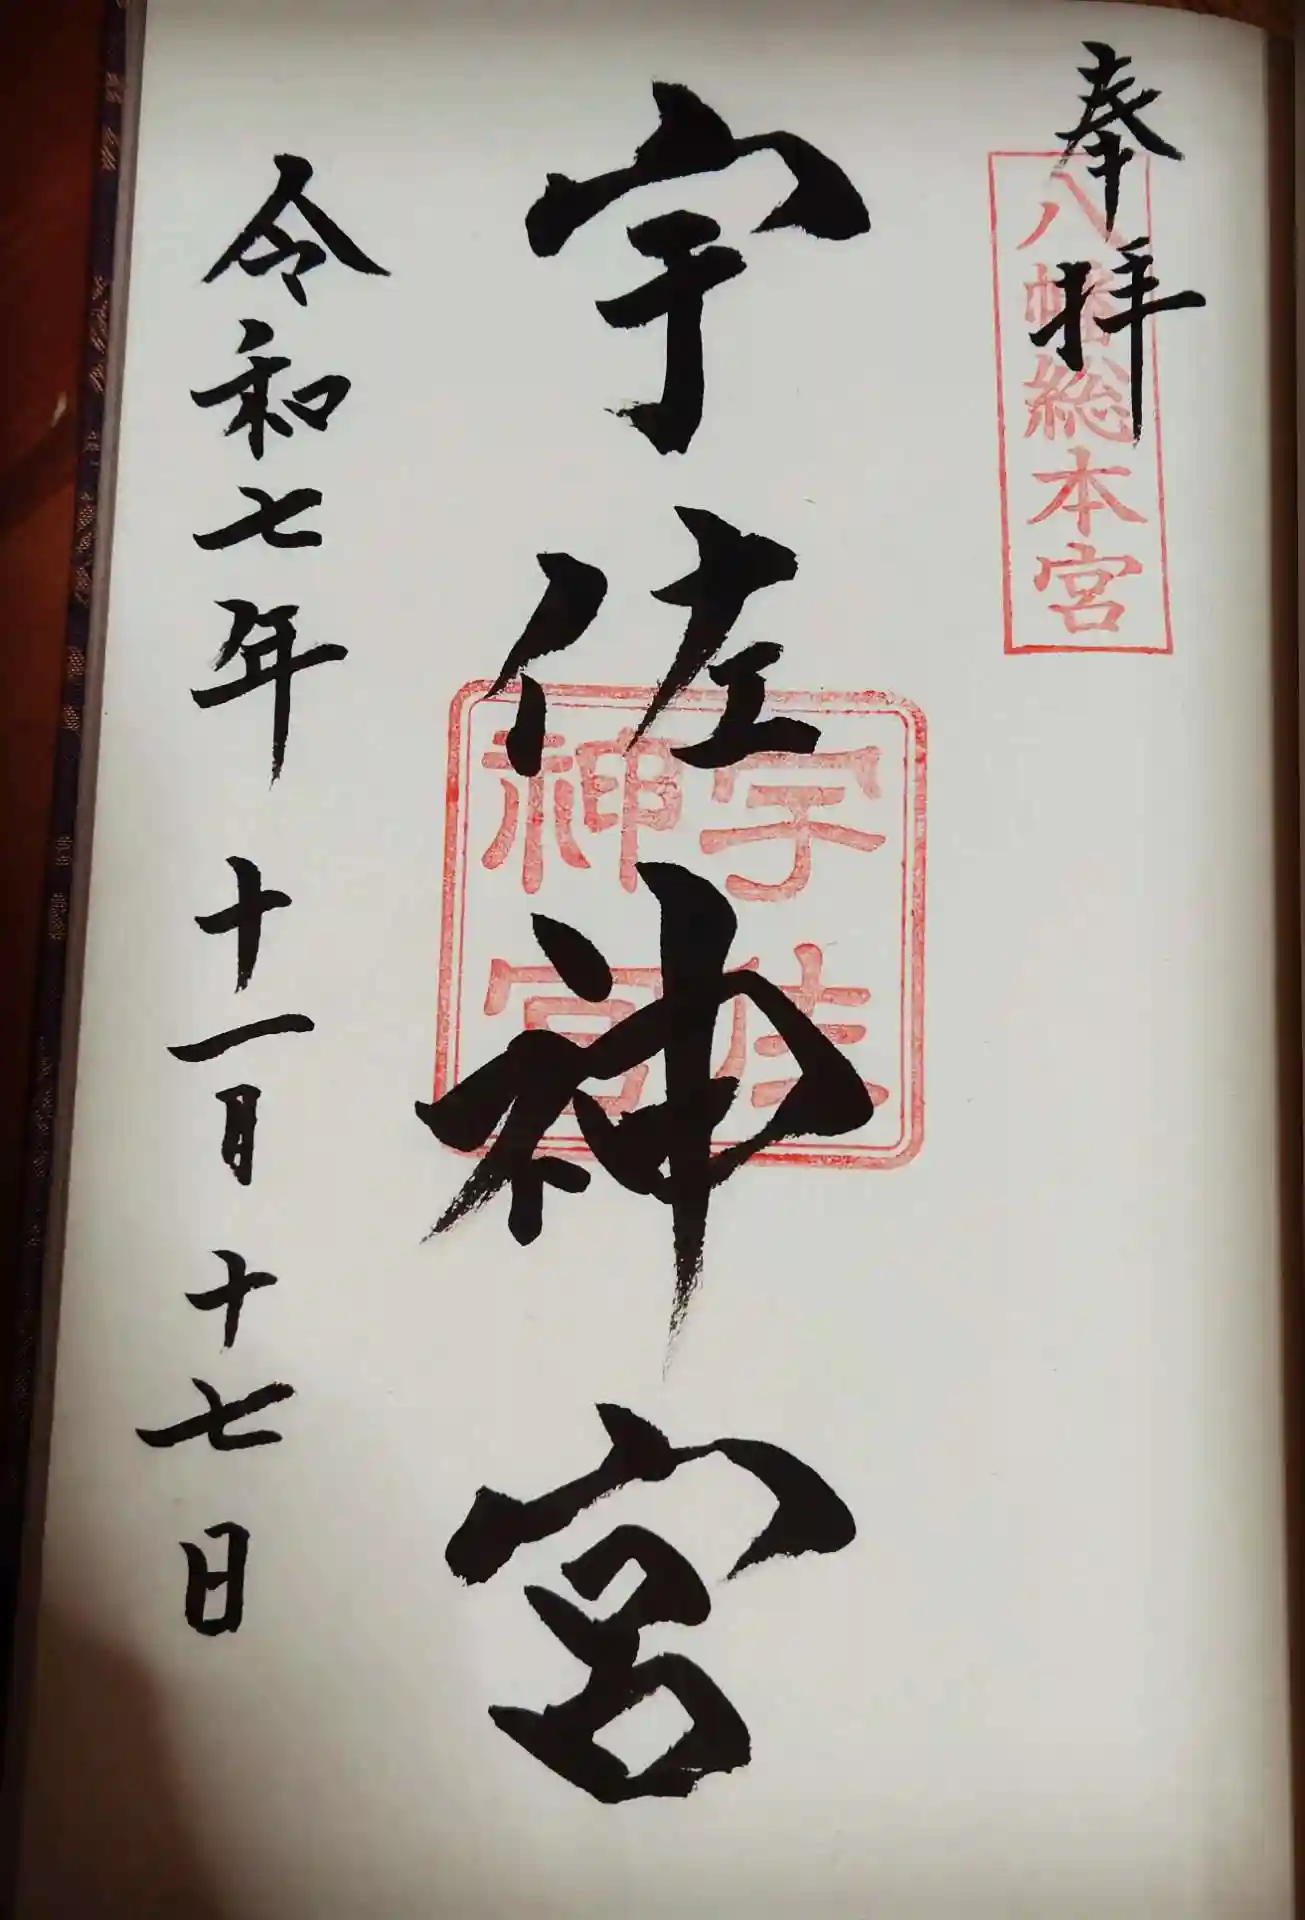 奉拝
八幡総本宮
宇佐神宮
宇佐
神宮
令和七年 十一月 十七日